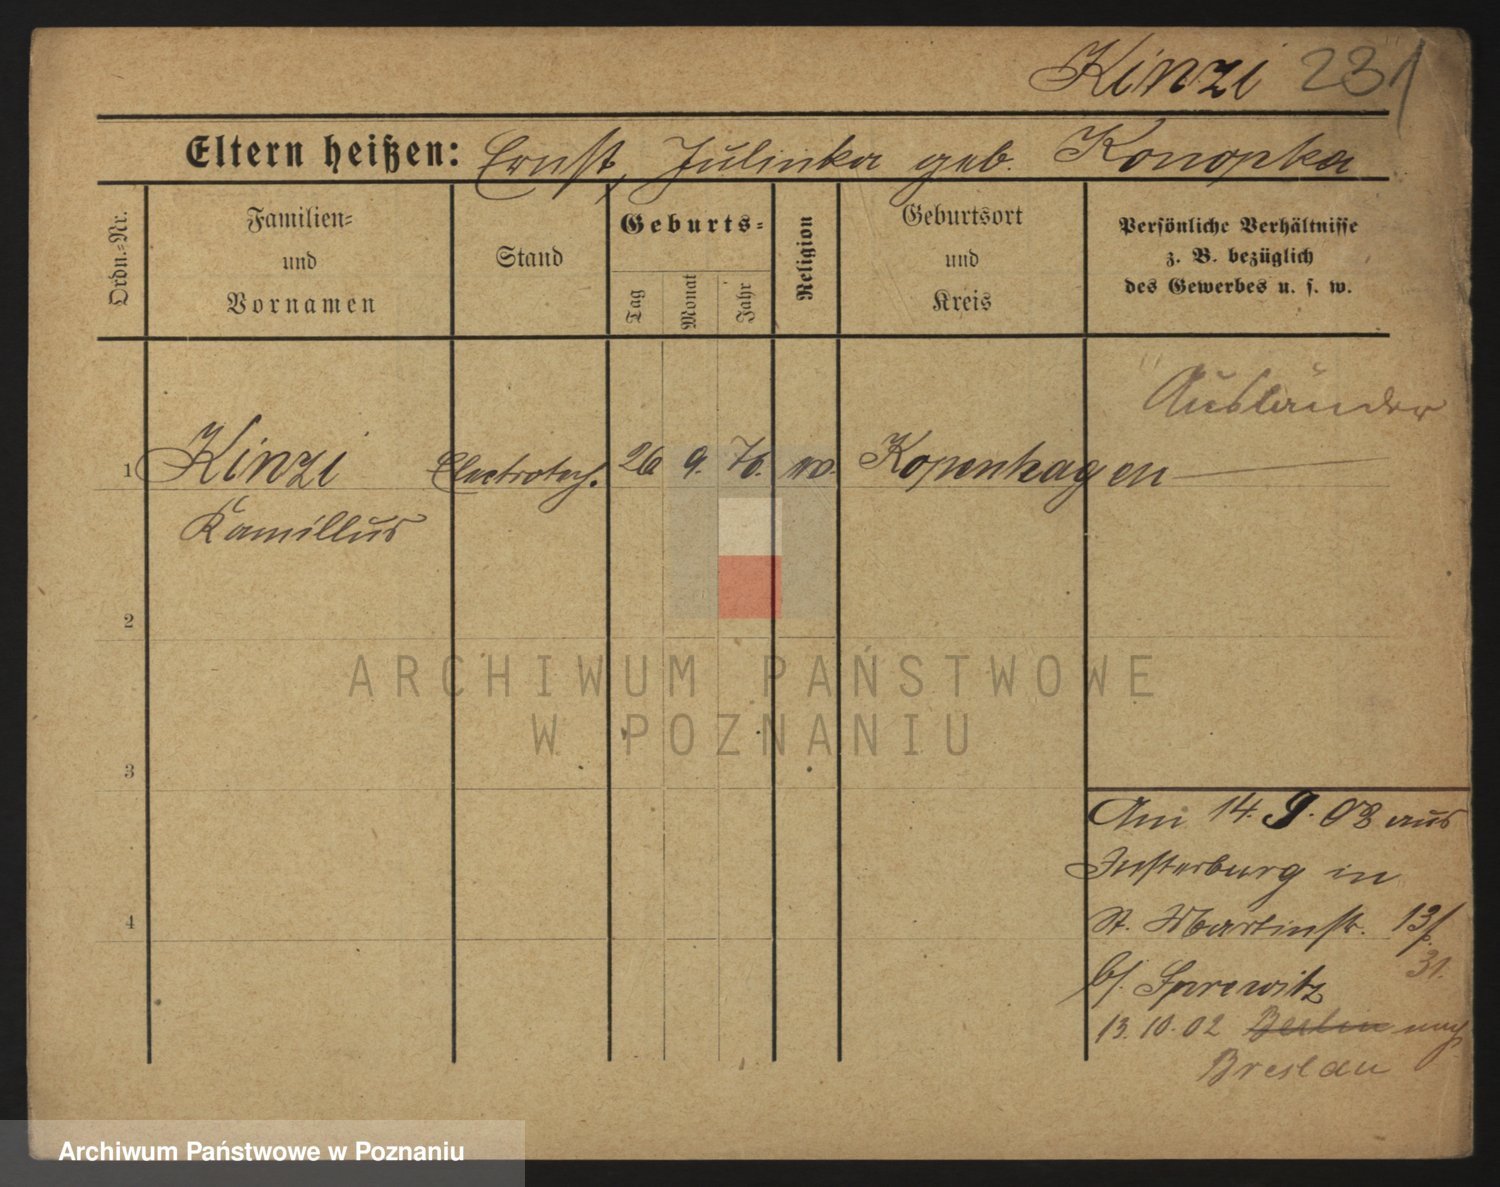 Kinzi 231
Eltern heißen: Ernst, Julinka geb. Konopka
Ordn.-Nr.
Familien-
und
Vornamen
Stand
Geburts-
Tag
Monat
Jahr
Religion
Geburtsort
und
Kreis
Persönliche Verhältnisse
z. B. bezüglich
des Gewerbes u. s. w.
Ausländer
1 Kinzi Electrotech. 26 9. 76. Kopenhagen
Kamillus
2
ARCHIWUM PAŃSTWOWE
W POZNANIU
3
Am 14. 9. 02 aus
Insterburg in
4
St. Martinstr. 13
31.
b/. Sprewitz
13.10.02 Berlin nach
Breslau
Archiwum Państwowe w Poznaniu